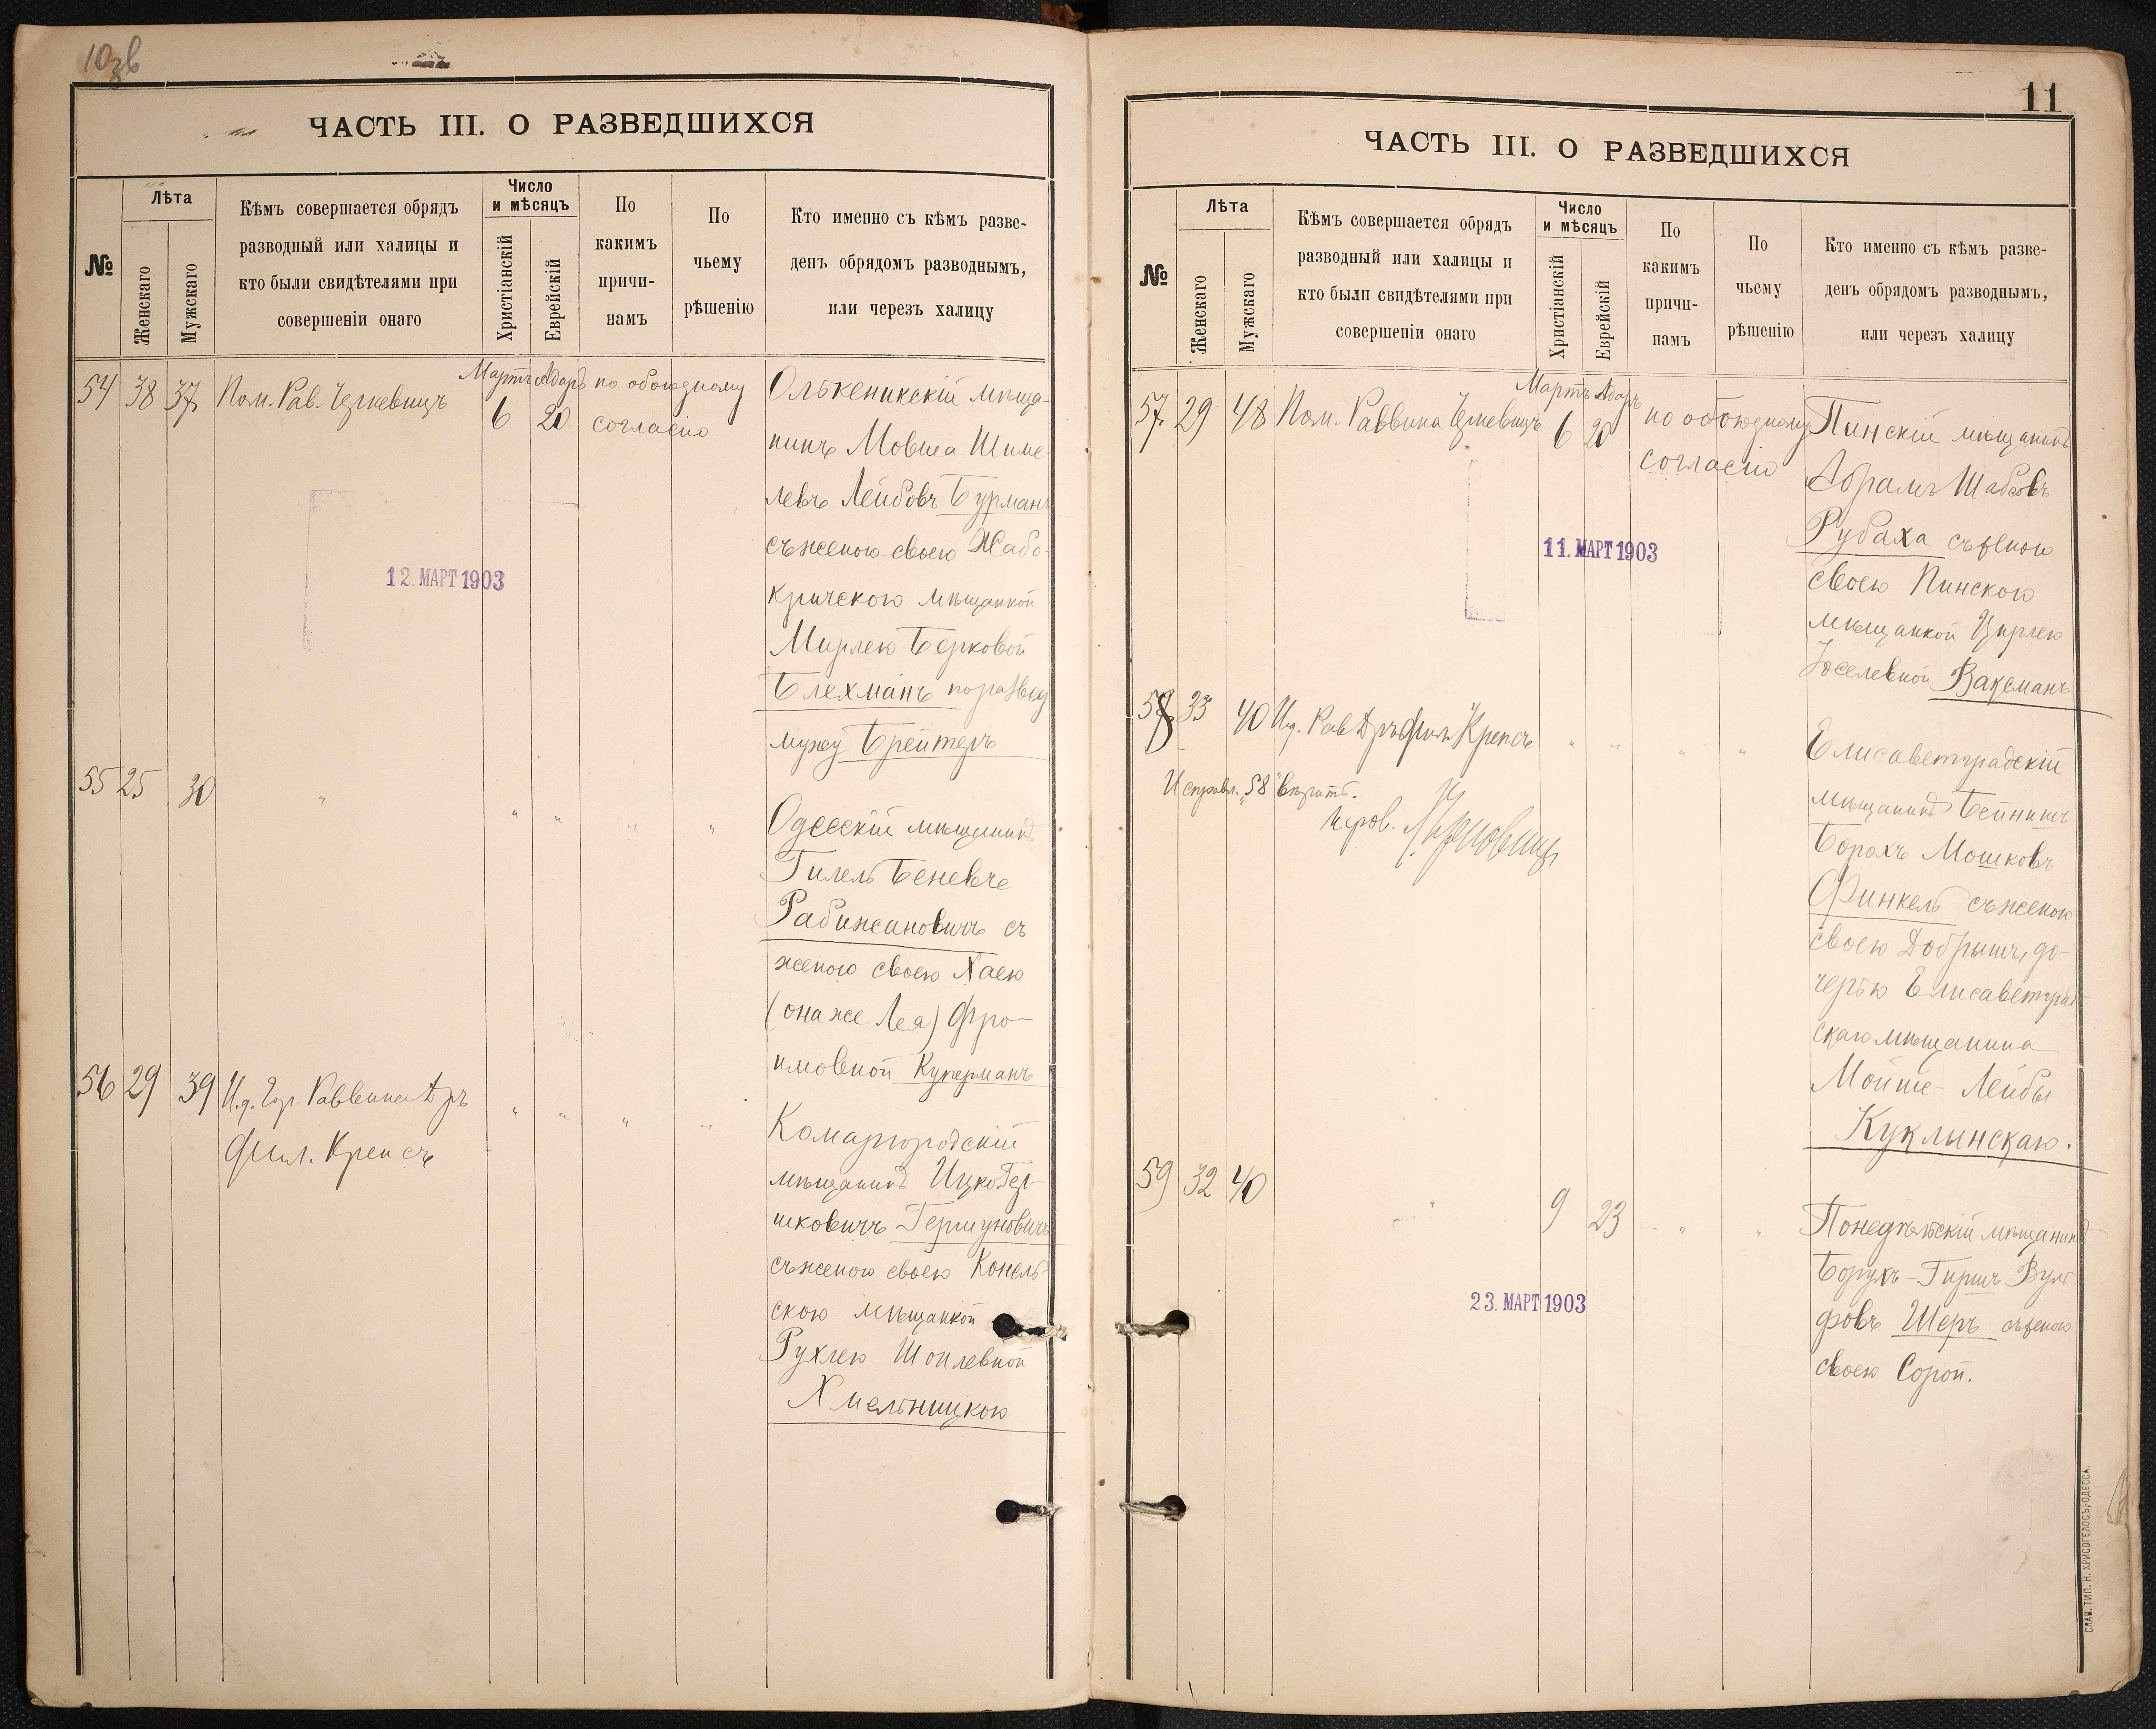 10зв
ЧАСТЬ III. О РАЗВЕДШИХСЯ
№
Лѣта
Женскаго
Мужскаго
Кѣмъ совершается обрядъ
разводный или халицы и
кто были свидѣтелями при
совершеніи онаго
Число
и мѣсяцъ
Христіанскій
Еврейскій
По
какимъ
причи-
намъ
По
чьему
рѣшенію
Кто именно съ кѣмъ разве-
денъ обрядомъ разводнымъ,
или черезъ халицу
54 38 37 Пом. Рав. Мартъ Адаръ по обоюдному
6 20 согласію
Олькеникскій мѣща-
нинъ Мовша Шиме-
левъ Лейбовъ Бурманъ
съ женою своею Жабо-
кричскою мѣщанкой
Мирлею Берковой
Блехманъ по развед
мужу Брейтеръ
12. МАРТ 1903
55 25 30 " " " " "
Одесскій мѣщанинъ
Гилель Беневъ
Рабижановичъ съ
женою своею Хаею
(она же Лея) Фро-
имовной Куперманъ
56 29 39 И.д. Гор. Раввина Д-ръ " " " "
Фил. Крепсъ
Комаргородскій
мѣщанинъ Ицко Гер-
шковичъ Гершуновичъ
съ женою своею Конель-
скою мѣщанкой
Рухлею Шоилевной
Хмельницкою
11
ЧАСТЬ III. О РАЗВЕДШИХСЯ
№
Лѣта
Женскаго
Мужскаго
Кѣмъ совершается обрядъ
разводный или халицы и
кто были свидѣтелями при
совершеніи онаго
Число
и мѣсяцъ
Христіанскій
Еврейскій
По
какимъ
причи-
намъ
По
чьему
рѣшенію
Кто именно съ кѣмъ разве-
денъ обрядомъ разводнымъ,
или черезъ халицу
57 29 48 Пом. Раввина Мартъ Адаръ по обоюдному
6 20 согласію
Пинскій мѣщанинъ
Абрамъ Шабсовъ
Рубаха съ женою
своею Пинскою
мѣщанкой Цирлею
Іоселевной Ваксманъ
11. МАРТ 1903
58 33 40 И.д. Рав. Д-ръ Фил. Крепсъ " " " "
Исправл. "58" вѣрить.
Елисаветградскій
мѣщанинъ Бейнишъ
Борохъ Мошковъ
Финкель съ женою
своею Добрышъ, до-
черью Елисаветград-
скаго мѣщанина
Мойше-Лейбы
Куклинскаго.
59 32 40 " 9 23 " "
Понедѣльскій мѣщанинъ
Борухъ-Гиршъ Вуль-
фовъ Шеръ съ женою
своею Сорой.
23. МАРТ 1903
СЛАВ. ТИП. Н. ХРИСОГЕЛОСЪ, ОДЕССА.